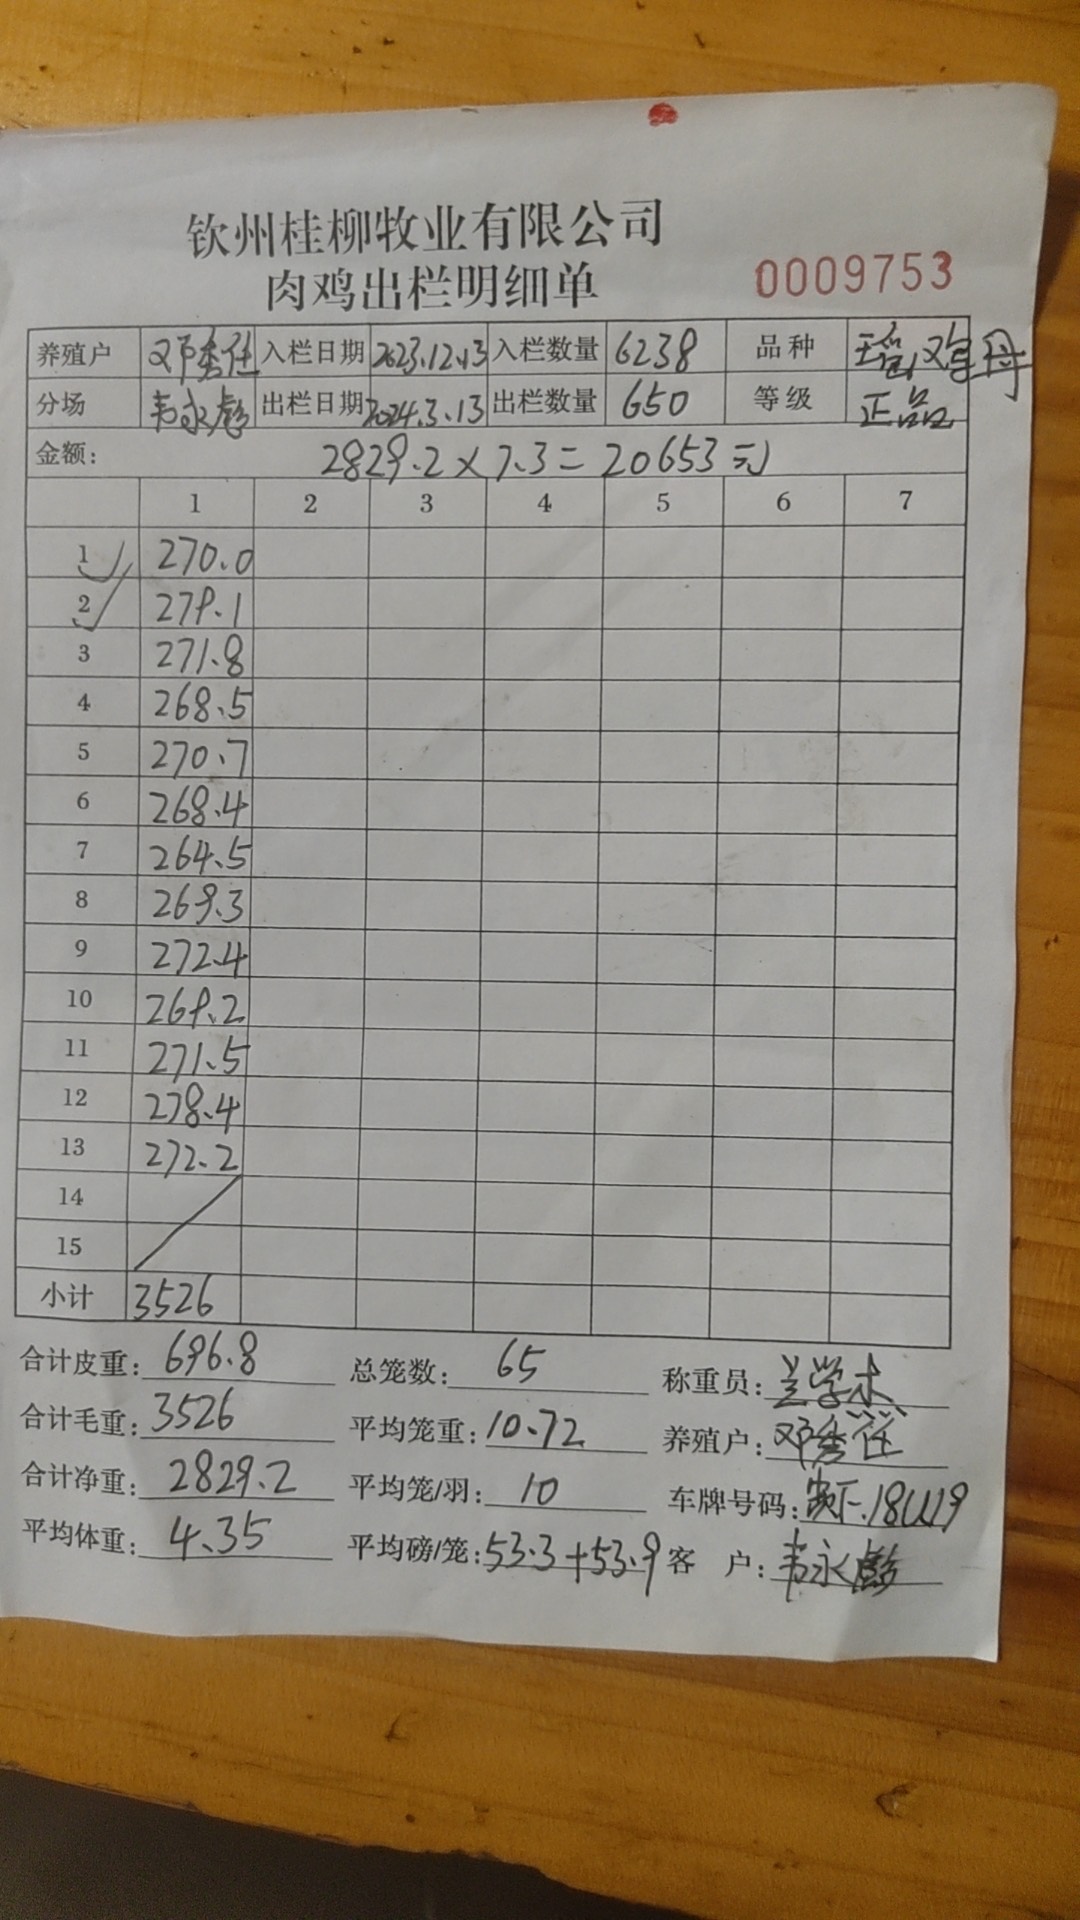 钦州桂柳牧业有限公司
肉鸡出栏明细单 0009753
养殖户 邓秀 入栏日期 2023.12.13 入栏数量 6238 品种 瑶鸡母
分场 韦永彪 出栏日期 2024.3.13 出栏数量 650 等级 正品
金额: 2829.2×7.3=20653元
1 2 3 4 5 6 7
1 270.0
2 279.1
3 271.8
4 268.5
5 270.7
6 268.4
7 264.5
8 269.3
9 272.4
10 269.2
11 271.5
12 278.4
13 272.2
14
15
小计 3526
合计皮重: 696.8 总笼数: 65 称重员: 兰学术
合计毛重: 3526 平均笼重: 10.72 养殖户: 邓秀
合计净重: 2829.2 平均笼/羽: 10 车牌号码:
平均体重: 4.35 平均磅/笼: 53.3+53.9 客户: 韦永彪